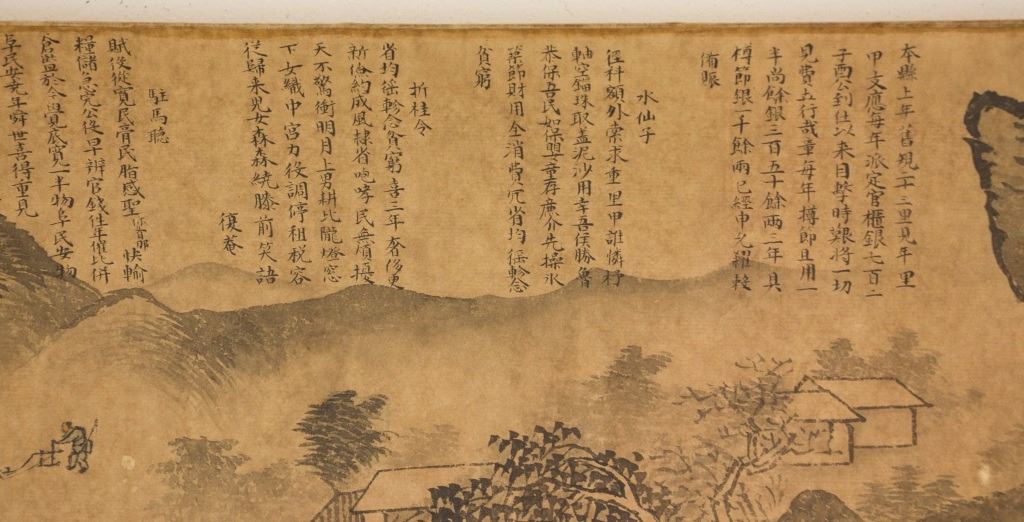 本縣上年舊規二十三里見年里
甲支應每年派定官櫃銀七百二
公到仕以來目擊時艱將一切
見費五行裁革每年撙節且用一
半尚餘銀三百五十餘兩二年共
樽節銀一千餘兩已經申允糴穀
備賑
水仙子
徑科額外索求重里甲誰憐杼
軸空錙珠取盡泥沙用幸吾侯勝魯
恭保吾民如保嬰童再廉介先操氷
蘗節財用全消費冗省均徭軫念
貧窮
折桂令
省均徭軫念貧窮喜三年奢侈更
新儉約成風隸省咆哮民無煩擾
天不驚衝明月上男耕比隴燈窓
下女織中宮力役調停租税容
從歸来兒女森森繞膝前笑語
復菴
駐馬聽
賦後從寬民膏民脂感聖 快輸
糧儲急完公役早辦官錢 年催比併
倉 於今覺底寬一半物阜民安物
阜民安堯年舜世喜得重見